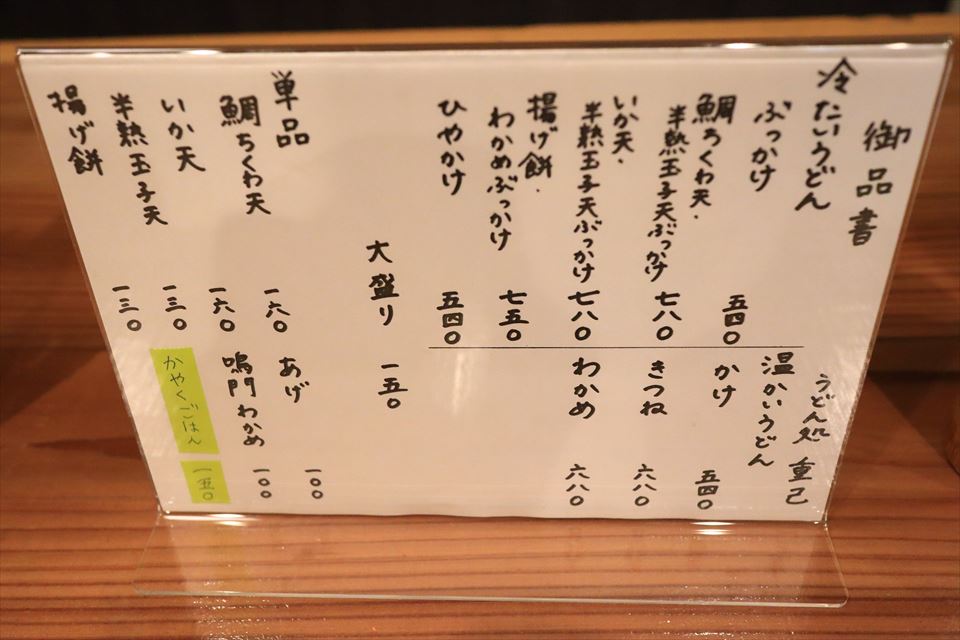 御品書
うどん処 重己
冷たいうどん
ぶっかけ 五四〇
鯛ちくわ天・
半熟玉子天ぶっかけ 七八〇
いか天・
半熟玉子天ぶっかけ 七八〇
揚げ餅・
わかめぶっかけ 七五〇
ひやかけ 五四〇
温かいうどん
かけ 五四〇
きつね 六八〇
わかめ 六八〇
大盛り 一五〇
単品
鯛ちくわ天 一六〇
いか天 一六〇
半熟玉子天 一三〇
揚げ餅 一三〇
あげ 一〇〇
鳴門わかめ 一〇〇
かやくごはん 一五〇